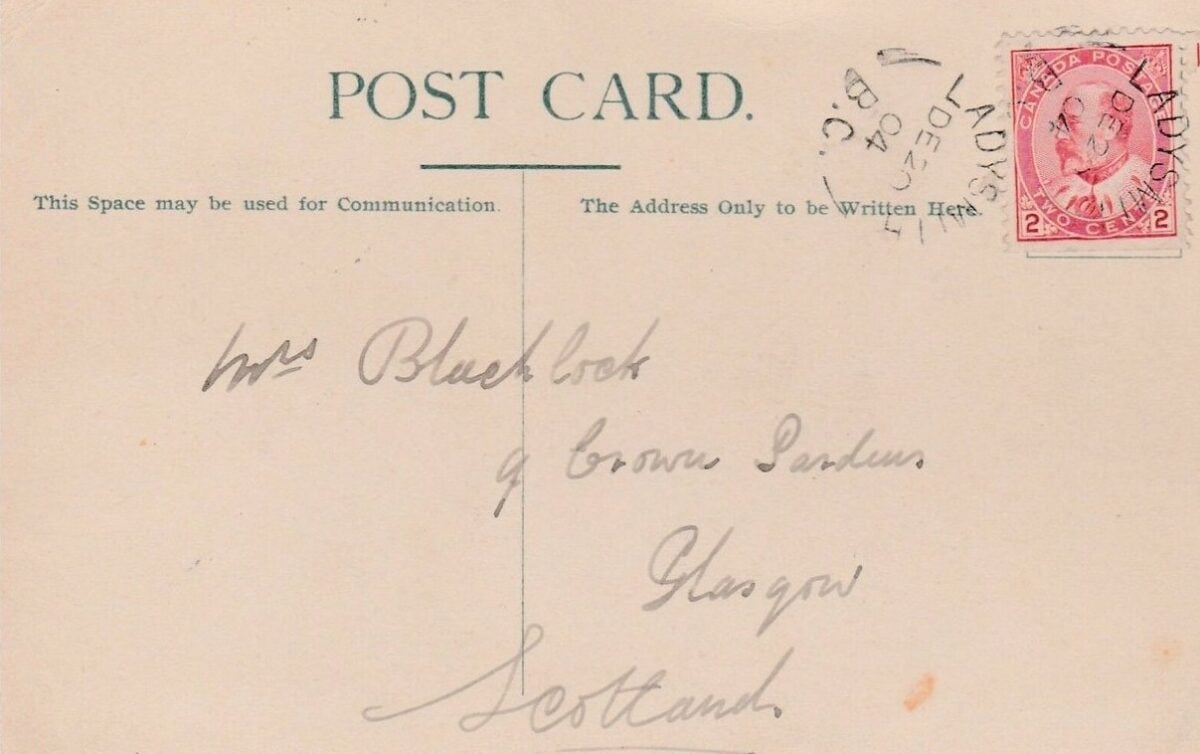 POST CARD.
This Space may be used for Communication.
The Address Only to be Written Here.
LADYSMITH
DE 20
04
B.C.
LADYSMITH
DE 2
04
B
CANADA POSTAGE
2 TWO CENTS 2
Mrs Blacklock
9 Crown Gardens
Glasgow
Scotland.